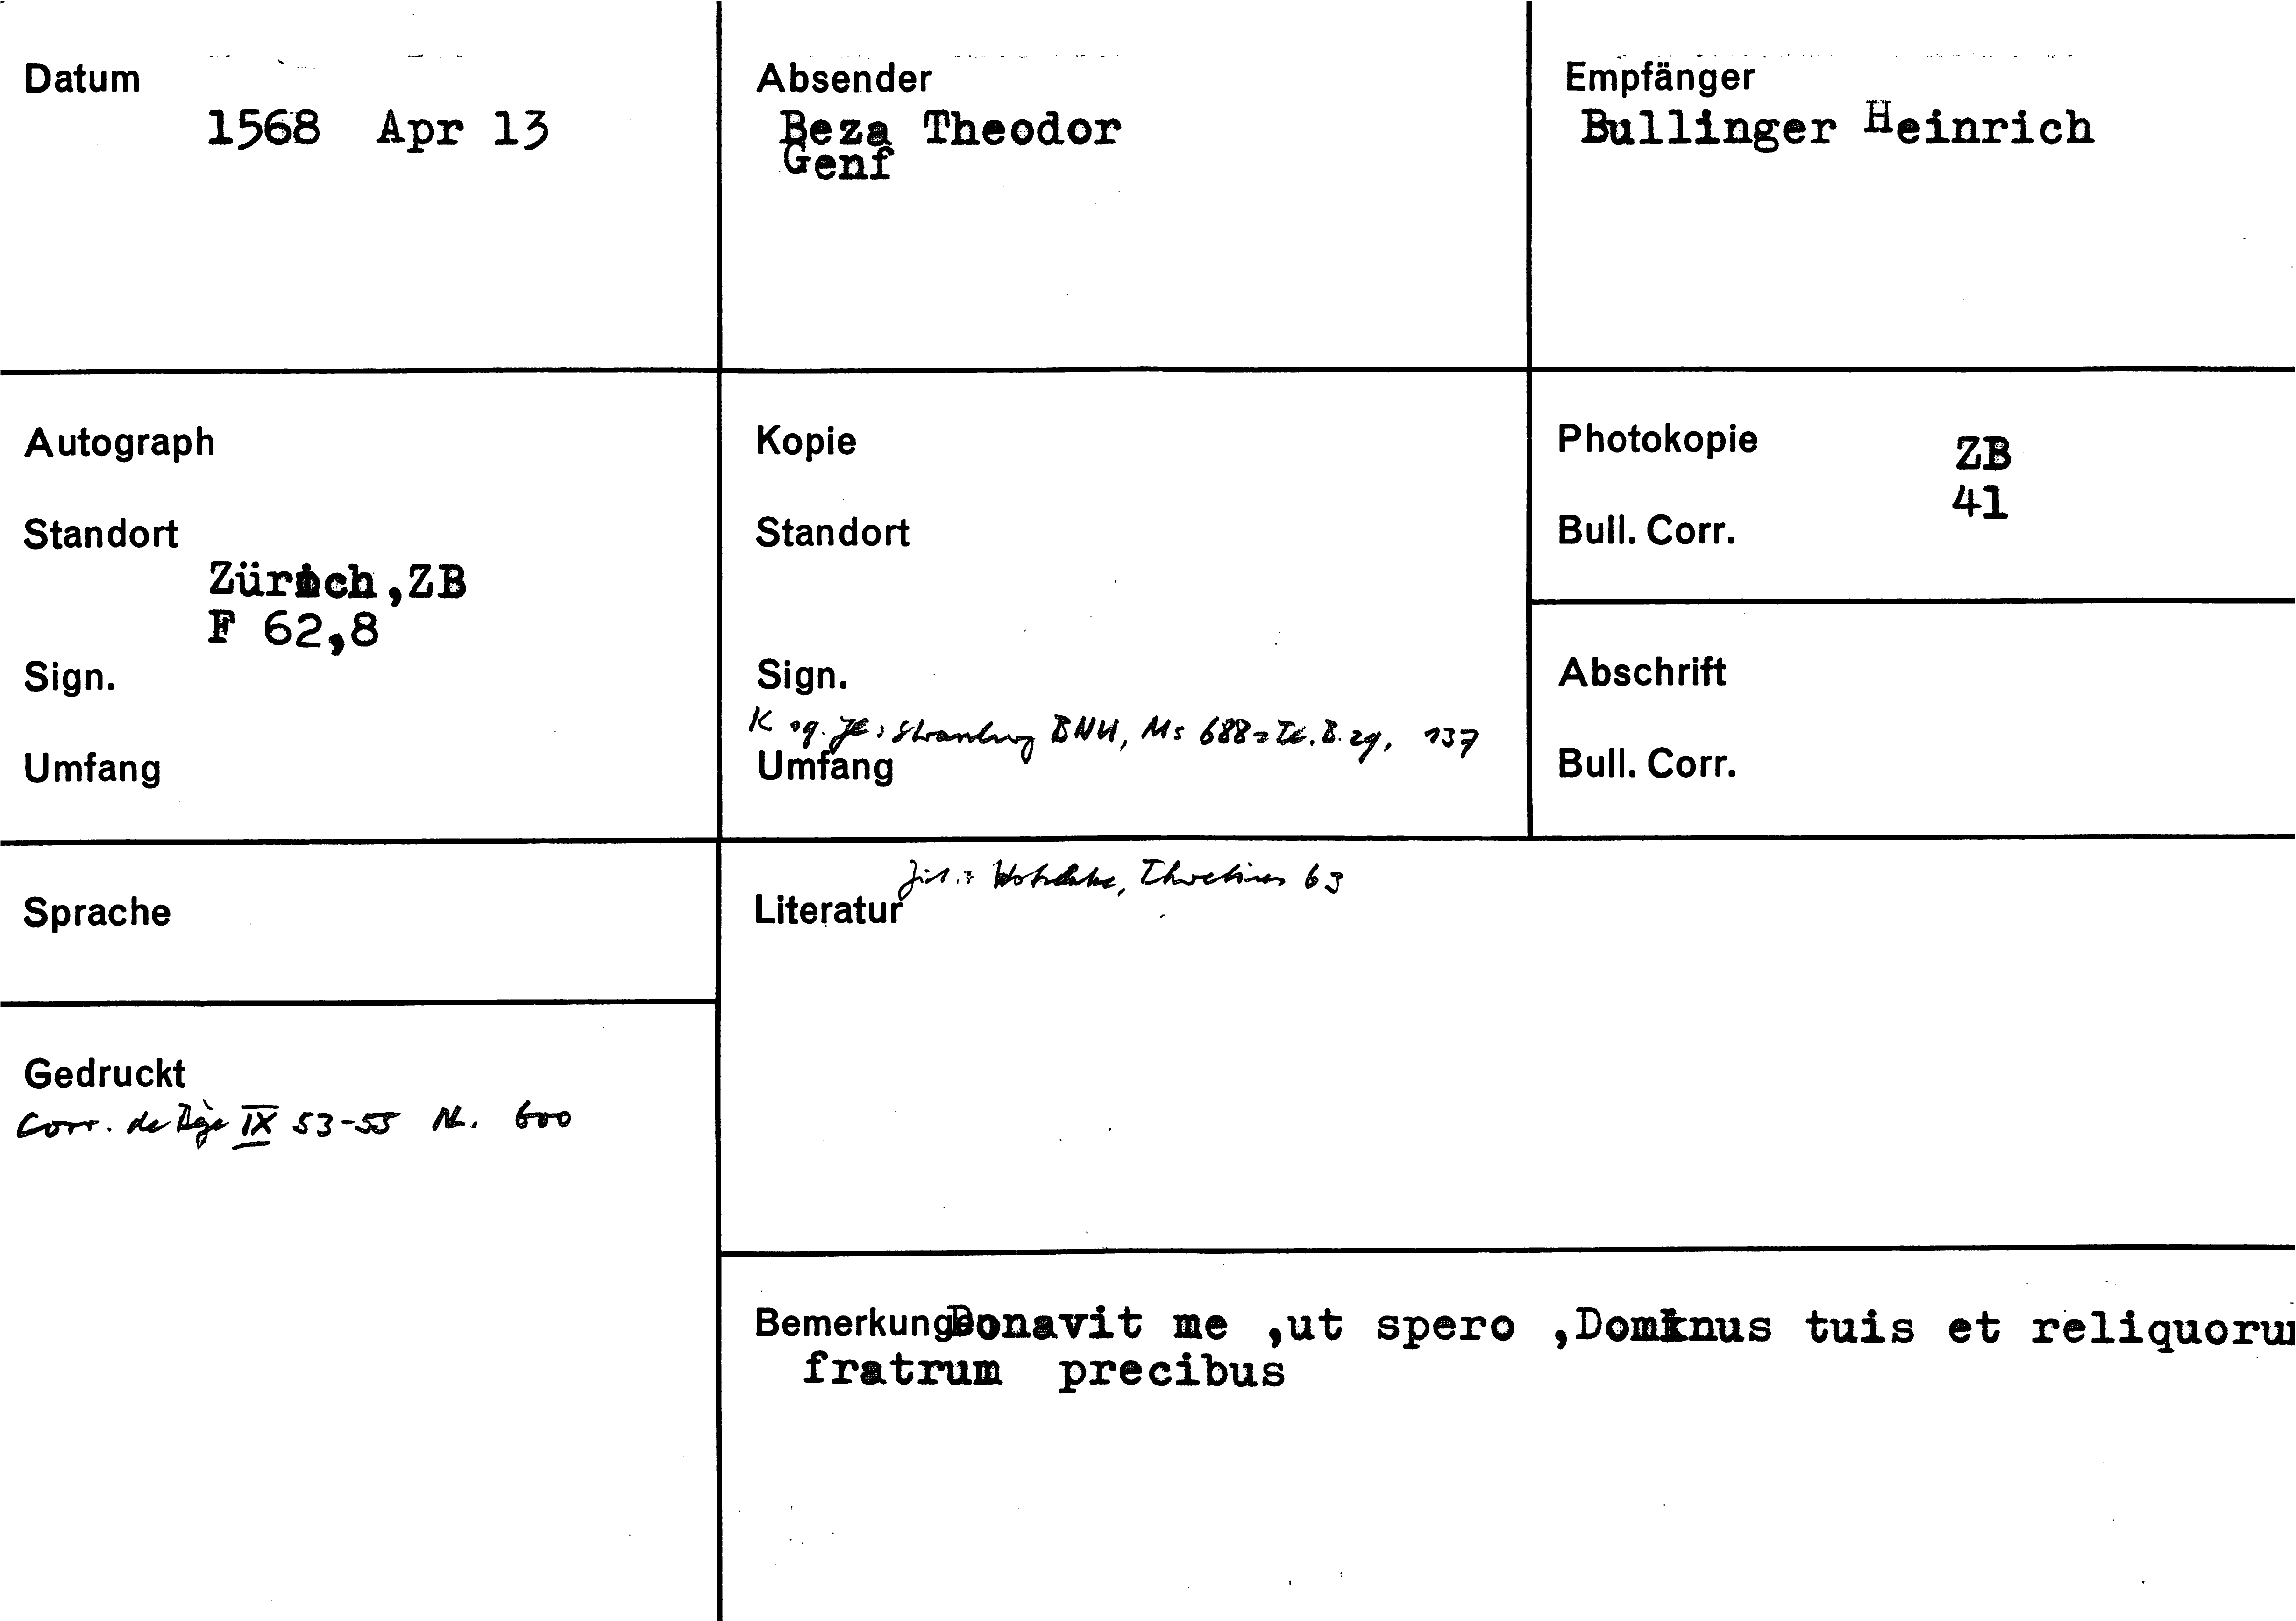 Datum
1568 Apr 13
Absender
Beza Theodor
Genf
Empfänger
Bullinger Heinrich
Autograph
Standort
Zürich,ZB
F 62,8
Sign.
Umfang
Kopie
Standort
Sign.
K Strassburg BNU, Ms 688 137
Umfang
Photokopie ZB
41
Bull. Corr.
Abschrift
Bull. Corr.
Sprache
Gedruckt
Corr. de Bèze IX 53-55 Nr. 600
Literatur
Wotschke, Thretius 63
Bemerkungen Donavit me ,ut spero ,Dominus tuis et reliquorum
fratrum precibus